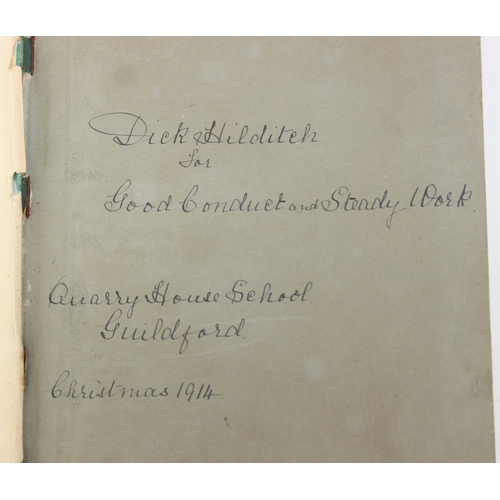 Dick Hilditch
for
Good Conduct and Steady Work
Quarry House School
Guildford.
Christmas 1914.